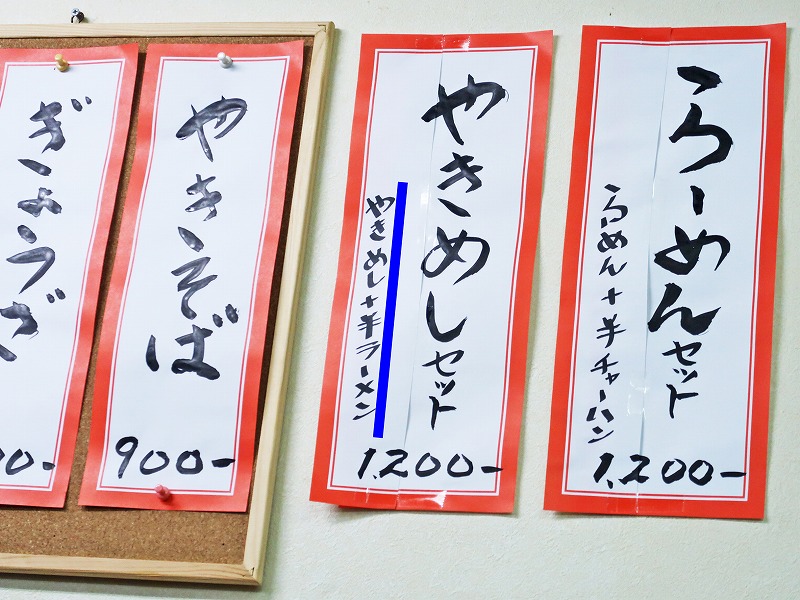 らーめんセット
らーめん+半チャーハン
1,200-
やきめしセット
やきめし+半ラーメン
1,200-
やきそば
900-
ぎょうざ
00-